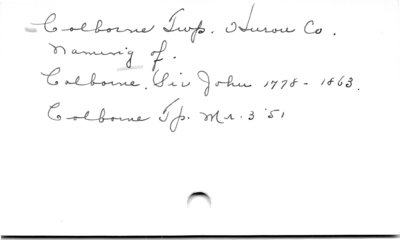 Colborne Twp. Huron Co.
Naming of.
Colborne, Sir John 1778 - 1863.
Colborne Tp. Mr. 3 '51